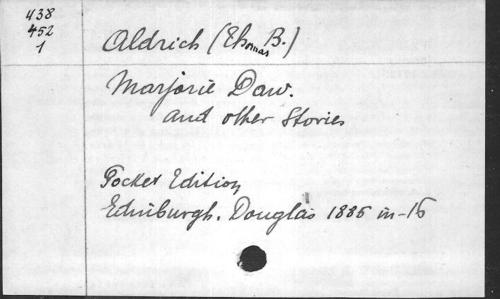 438
452
1
Aldrich (Thomas B.)
Marjorie Daw.
and other Stories
Pocket Edition
Edinburgh. Douglas 1885 in-16